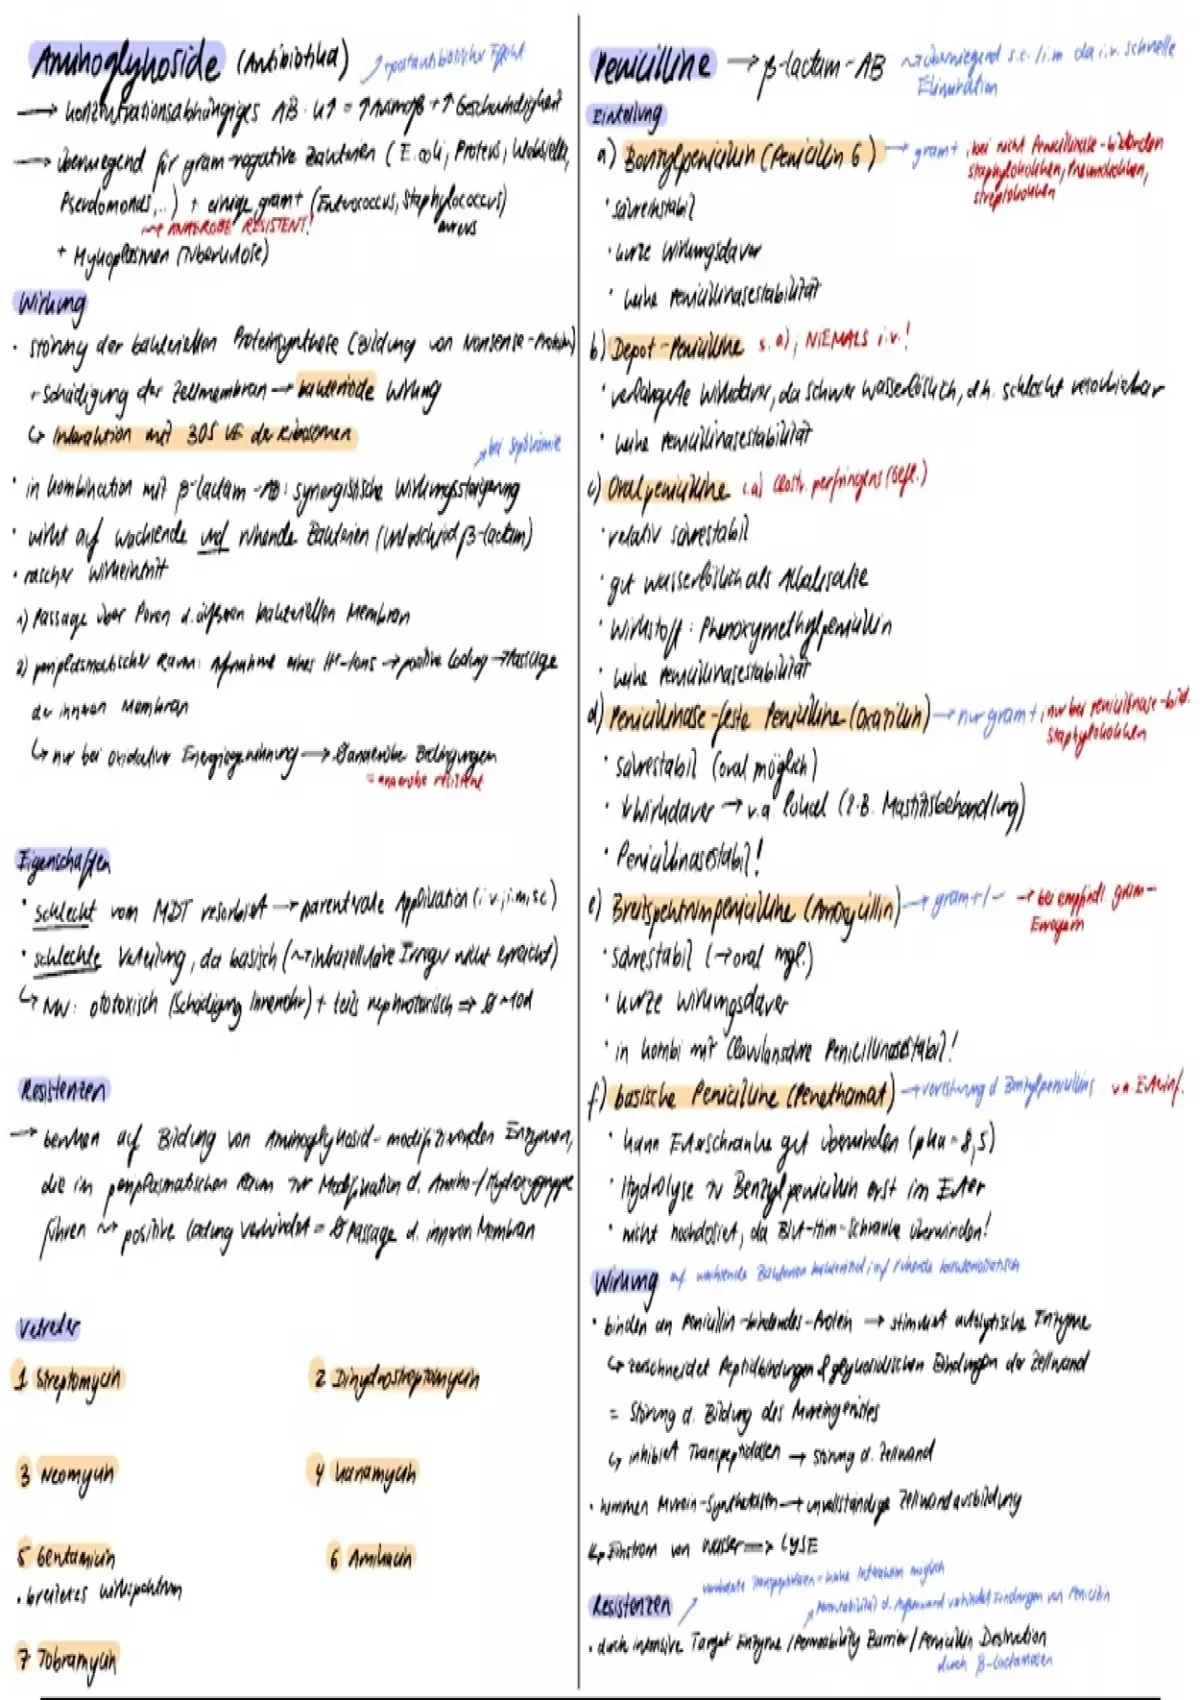 Aminoglykoside (Antibiotika) ↗ postantibiotischer Effekt
→ konzentrationsabhängiges AB: ↑ = ↑ Ausmaß + ↑ Geschwindigkeit
→ überwiegend für gram-negative Bakterien (E. coli, Proteus, Klebsiella,
Pseudomonas,..) + einige gram+ (Enterococcus, Staphylococcus aureus)
↝ ANAEROBE RESISTENT!
+ Mykoplasmen (Tuberkulose)
Wirkung
· Störung der bakteriellen Proteinsynthese (Bildung von Nonsense-Protein)
+ Schädigung der Zellmembran → bakterizide Wirkung
↳ Interaktion mit 30S UE der Ribosomen
↗ bei Septikämie
· in Kombination mit β-lactam-AB: synergistische Wirkungssteigerung
· wirkt auf wachsende und ruhende Bakterien (Unterschied β-lactam)
· rascher Wirkeintritt
1) Passage über Poren d. äußeren bakteriellen Membran
2) periplasmatischer Raum: Aufnahme eines H+-Ions → positive Ladung → Passage
der inneren Membran
↳ nur bei oxidativer Energiegewinnung → Ø anaerobe Bedingungen
= anaerobe resistent
Eigenschaften
· schlecht vom MDT resorbiert → parenterale Applikation (i.v., i.m, s.c)
· schlechte Verteilung, da basisch (↝ intrazelluläre Erreger nicht erreicht)
↳ NW: ototoxisch (Schädigung Innenohr) + teils nephrotoxisch ⇒ Ø >10d
Resistenzen
→ beruhen auf Bildung von Aminoglykosid-modifizierenden Enzymen,
die im periplasmatischen Raum zur Modifikation d. Amino-/Hydroxygruppe
führen ↝ positive Ladung verhindert = Ø Passage d. inneren Membran
Vertreter
1 Streptomycin
2 Dihydrostreptomycin
3 Neomycin
4 Kanamycin
5 Gentamicin
· breiteres Wirkspektrum
6 Amikacin
7 Tobramycin
Penicilline → β-lactam-AB ↝ überwiegend s.c./i.m da i.v. schnelle
Elimination
Einteilung
a) Benzylpenicillin (Penicillin G) → gram+, bei nicht Penicillinase-bildenden
Staphylokokken, Pneumokokken,
Streptokokken
· säureinstabil
· kurze Wirkungsdauer
· keine Penicillinasestabilität
b) Depot-Penicilline s. a), NIEMALS i.v.!
· verlängerte Wirkdauer, da schwer wasserlöslich, d.h. schlecht resorbierbar
· keine Penicillinasestabilität
c) Oralpenicilline s.a) Clostr. perfringens (Gefl.)
· relativ säurestabil
· gut wasserlöslich als Alkalisalze
· Wirkstoff: Phenoxymethylpenicillin
· keine Penicillinasestabilität
d) Penicillinase-feste Penicilline (Oxacillin) → nur gram+, nur bei penicillinase-bild.
Staphylokokken
· säurestabil (oral möglich)
· ↓ Wirkdauer → v.a. lokal (z.B. Mastitisbehandlung)
· Penicillinasestabil!
e) Breitspektrumpenicilline (Amoxycillin) → gram+/- → bei empfindl gram-
Erregern
· säurestabil (→ oral mgl.)
· kurze Wirkungsdauer
· in Kombi mit Clavulansäure Penicillinasestabil!
f) basische Penicilline (Penethamat) → Veresterung d Benzylpenicillins v.a. Euterinf.
· kann Euterschranke gut überwinden (pka = 8,5)
· Hydrolyse zu Benzylpenicillin erst im Euter
· nicht hochdosiert, da Blut-Hirn-Schranke überwinden!
Wirkung auf wachsende Bakterien bakterizid, auf ruhende bakteriostatisch
· binden an Penicillin-bindendes-Protein → stimuliert autolytische Enzyme
↳ zerschneidet Peptidbindungen & glykosidischen Bindungen der Zellwand
= Störung d. Bildung des Mureingerüstes
↳ inhibiert Transpeptidasen → Störung d. Zellwand
· hemmen Murein-Synthetasen → unvollständige Zellwandausbildung
↳ Einstrom von Wasser ⇒ LYSE
veränderte Transpeptidasen = keine Interaktion möglich
Resistenzen ↗ Permeabilität d. Außenwand verhindert Eindringen von Penicillin
· durch intensive Target Enzyme / Permeability Barrier / Penicillin Destruction
durch β-Lactamasen